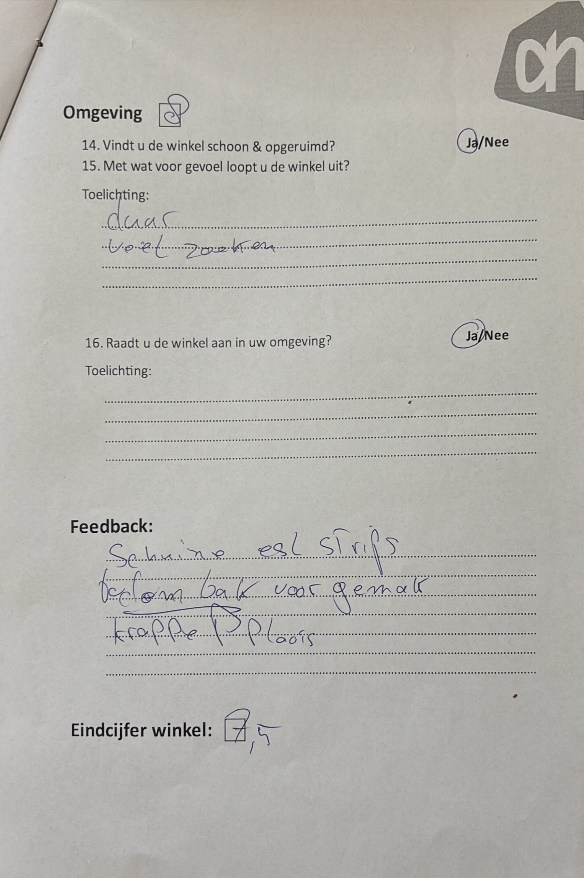 ah
Omgeving 8
14. Vindt u de winkel schoon & opgeruimd? Ja/Nee
15. Met wat voor gevoel loopt u de winkel uit?
Toelichting:
duur
veel zoeken
16. Raadt u de winkel aan in uw omgeving? Ja/Nee
Toelichting:
Feedback:
Schuine esl strips
bak voor gemak
krappe P plaats
Eindcijfer winkel: 7,5